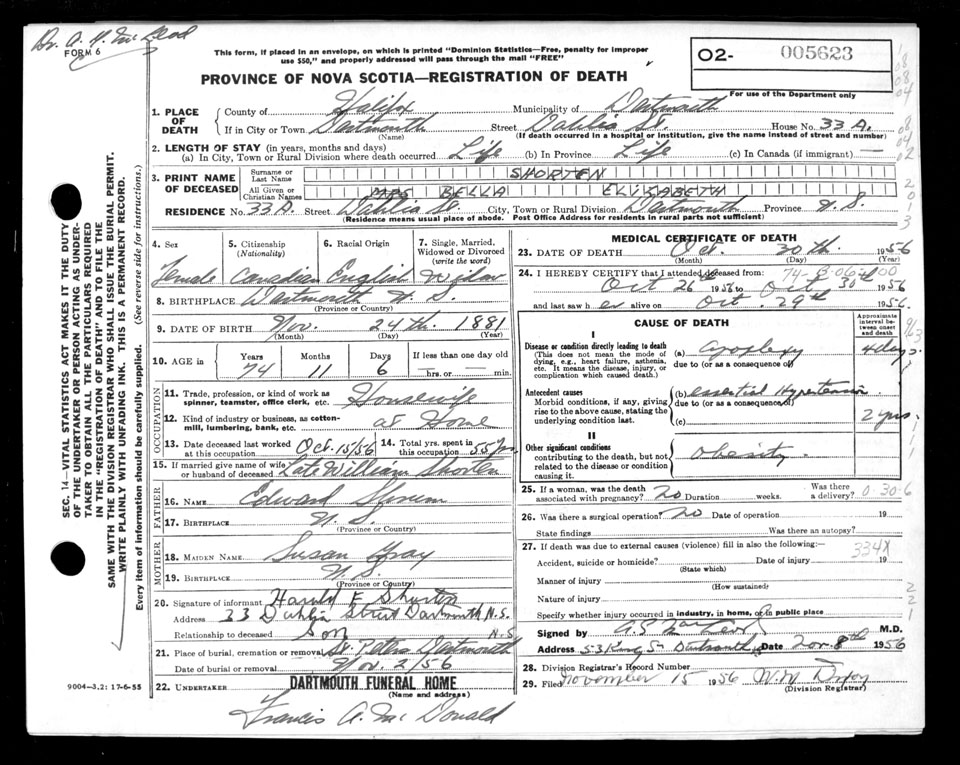 Dr. A. H. McLeod
FORM 6
This form, if placed in an envelope, on which is printed "Dominion Statistics—Free, penalty for improper
use $50," and properly addressed will pass through the mail "FREE"
O2- 005623
For use of the Department only
PROVINCE OF NOVA SCOTIA—REGISTRATION OF DEATH
1. PLACE OF DEATH
County of Halifax Municipality of Dartmouth
If in City or Town Dartmouth Street Dahlia St. House No. 33 A.
(Name) (If death occurred in a hospital or institution, give the name instead of street and number)
2. LENGTH OF STAY (in years, months and days)
(a) In City, Town or Rural Division where death occurred Life (b) In Province Life (c) In Canada (if immigrant) —
3. PRINT NAME OF DECEASED
Surname or Last Name SHORTEN
All Given or Christian Names MRS BELLA ELIZABETH
RESIDENCE No. 33 A. Street Dahlia St. City, Town or Rural Division Dartmouth Province N.S.
(Residence means usual place of abode. Post Office Address for residents in rural parts not sufficient)
4. Sex 5. Citizenship (Nationality) 6. Racial Origin 7. Single, Married, Widowed or Divorced (write the word)
Female Canadian English Widow
8. BIRTHPLACE Dartmouth N.S.
(Province or Country)
9. DATE OF BIRTH Nov. 24th. 1881
(Month) (Day) (Year)
10. AGE IN Years Months Days If less than one day old
74 11 6 hrs. or min.
OCCUPATION
11. Trade, profession, or kind of work as spinner, teamster, office clerk, etc. Housewife
12. Kind of industry or business, as cotton-mill, lumbering, bank, etc. at Home
13. Date deceased last worked at this occupation Oct. 15/56 14. Total yrs. spent in this occupation 55 yrs
15. If married give name of wife or husband of deceased Late William Shorten
FATHER
16. NAME Edward
17. BIRTHPLACE N.S.
(Province or Country)
MOTHER
18. MAIDEN NAME Susan Gray
19. BIRTHPLACE N.S.
(Province or Country)
20. Signature of informant Harold E Shorten
Address 33 Dahlia Street Dartmouth N.S.
Relationship to deceased Son N.S
21. Place of burial, cremation or removal St. Peters Dartmouth
Date of burial or removal Nov. 2/56
22. UNDERTAKER DARTMOUTH FUNERAL HOME
(Name and address)
9004—3.2: 17-6-55
Francis A. McDonald
MEDICAL CERTIFICATE OF DEATH
23. DATE OF DEATH Oct. 30th. 1956
(Month) (Day) (Year)
24. I HEREBY CERTIFY that I attended deceased from:
Oct 26th 1956 to Oct 30th 1956
and last saw her alive on Oct 29th 1956.
CAUSE OF DEATH
Approximate interval between onset and death
I
Disease or condition directly leading to death
(This does not mean the mode of dying, e.g., heart failure, asthenia, etc. It means the disease, injury, or complication which caused death.)
(a) apoplexy 4 days
due to (or as a consequence of)
Antecedent causes
Morbid conditions, if any, giving rise to the above cause, stating the underlying condition last.
(b) essential Hypertension
due to (or as a consequence of)
(c) 2 yrs
II
Other significant conditions
contributing to the death, but not related to the disease or condition causing it.
Obesity
25. If a woman, was the death associated with pregnancy? no Duration weeks. Was there a delivery? 0-30-6
26. Was there a surgical operation? no Date of operation 19
State findings Was there an autopsy?
27. If death was due to external causes (violence) fill in also the following: 334X
Accident, suicide or homicide? Date of injury 19
(State which)
Manner of injury
(How sustained)
Nature of injury
Specify whether injury occurred in industry, in home, or in public place
Signed by M.D.
Address 53 King St Dartmouth Date Nov. 8th 1956
28. Division Registrar's Record Number
29. Filed November 15 1956
(Division Registrar)
SEC. 14—VITAL STATISTICS ACT MAKES IT THE DUTY
OF THE UNDERTAKER OR PERSON ACTING AS UNDER-
TAKER TO OBTAIN ALL THE PARTICULARS REQUIRED
IN THE "REGISTRATION OF DEATH" AND TO FILE THE
SAME WITH THE DIVISION REGISTRAR WHO SHALL ISSUE THE BURIAL PERMIT.
WRITE PLAINLY WITH UNFADING INK. THIS IS A PERMANENT RECORD.
Every item of information should be carefully supplied. (See reverse side for instructions.)